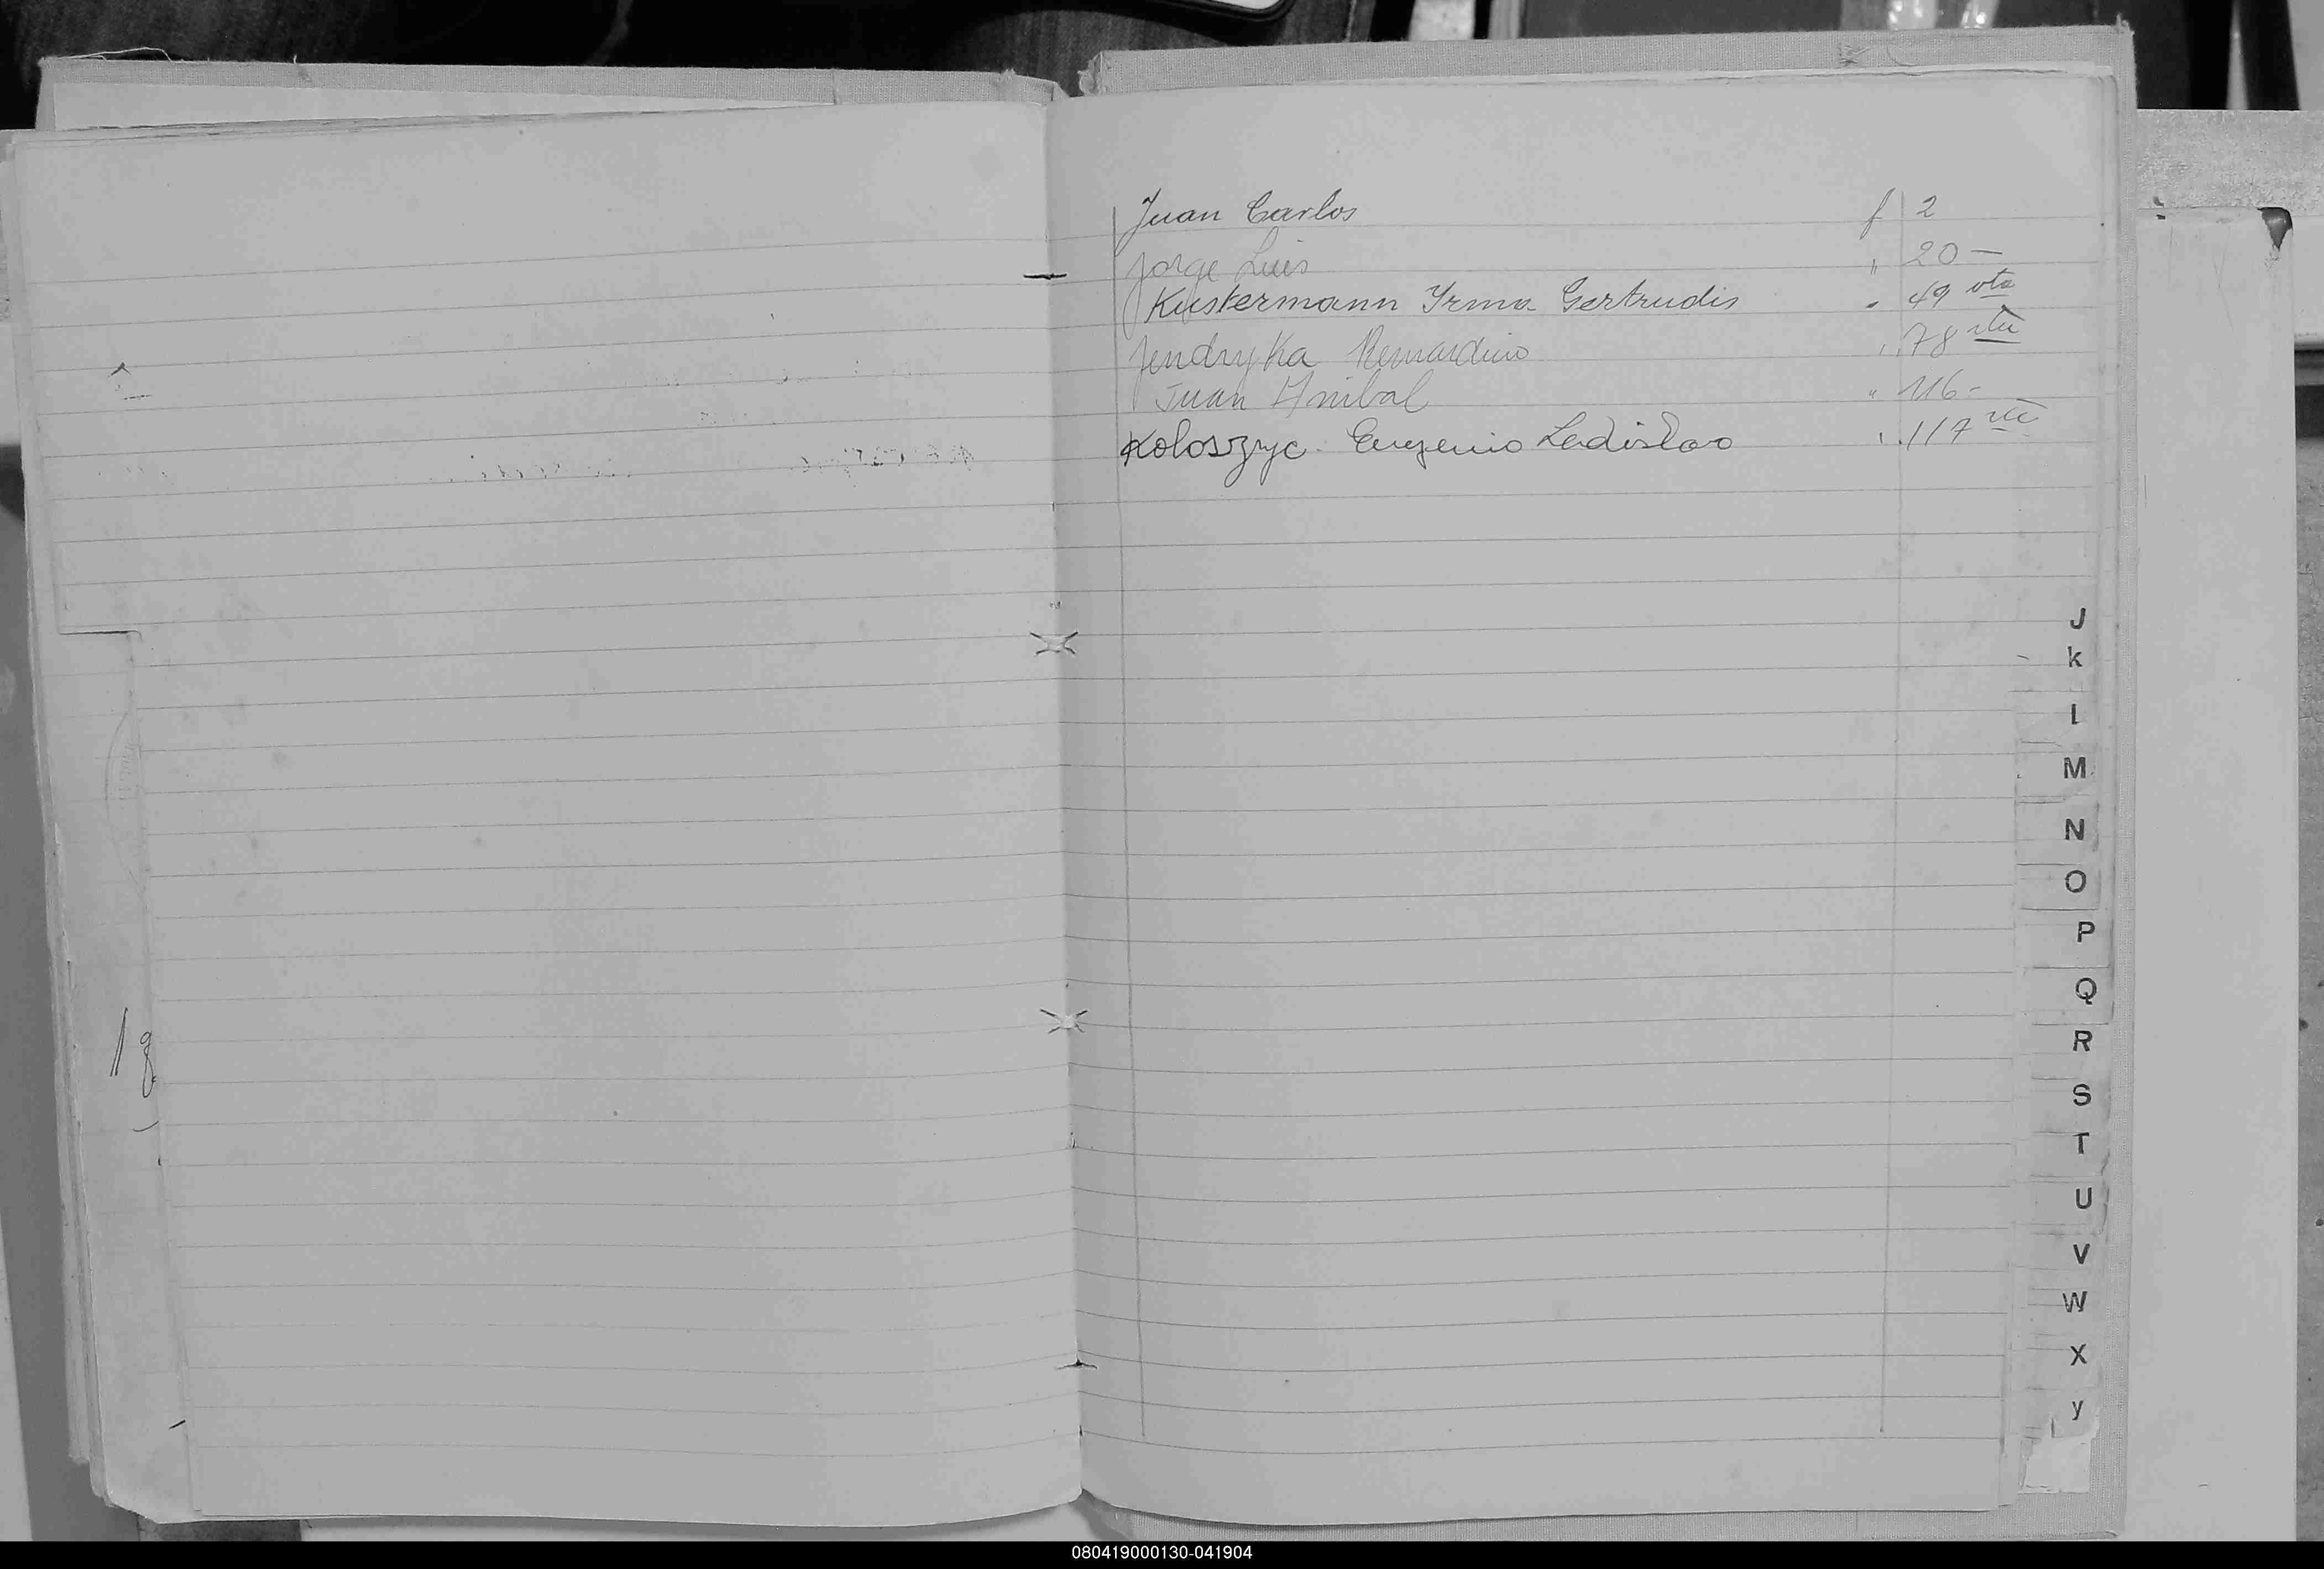 Juan Carlos f 2
Jorge Luis " 20 —
Kustermann Yrma Gertrudis " 49 vta
Jendryka Bernardino " 78 vta
Juan Anibal " 116 -
Koloszyc Eugenio Ladislao " 117 vta
J
k
l
M
N
O
P
Q
R
S
T
U
V
W
X
y
080419000130-041904